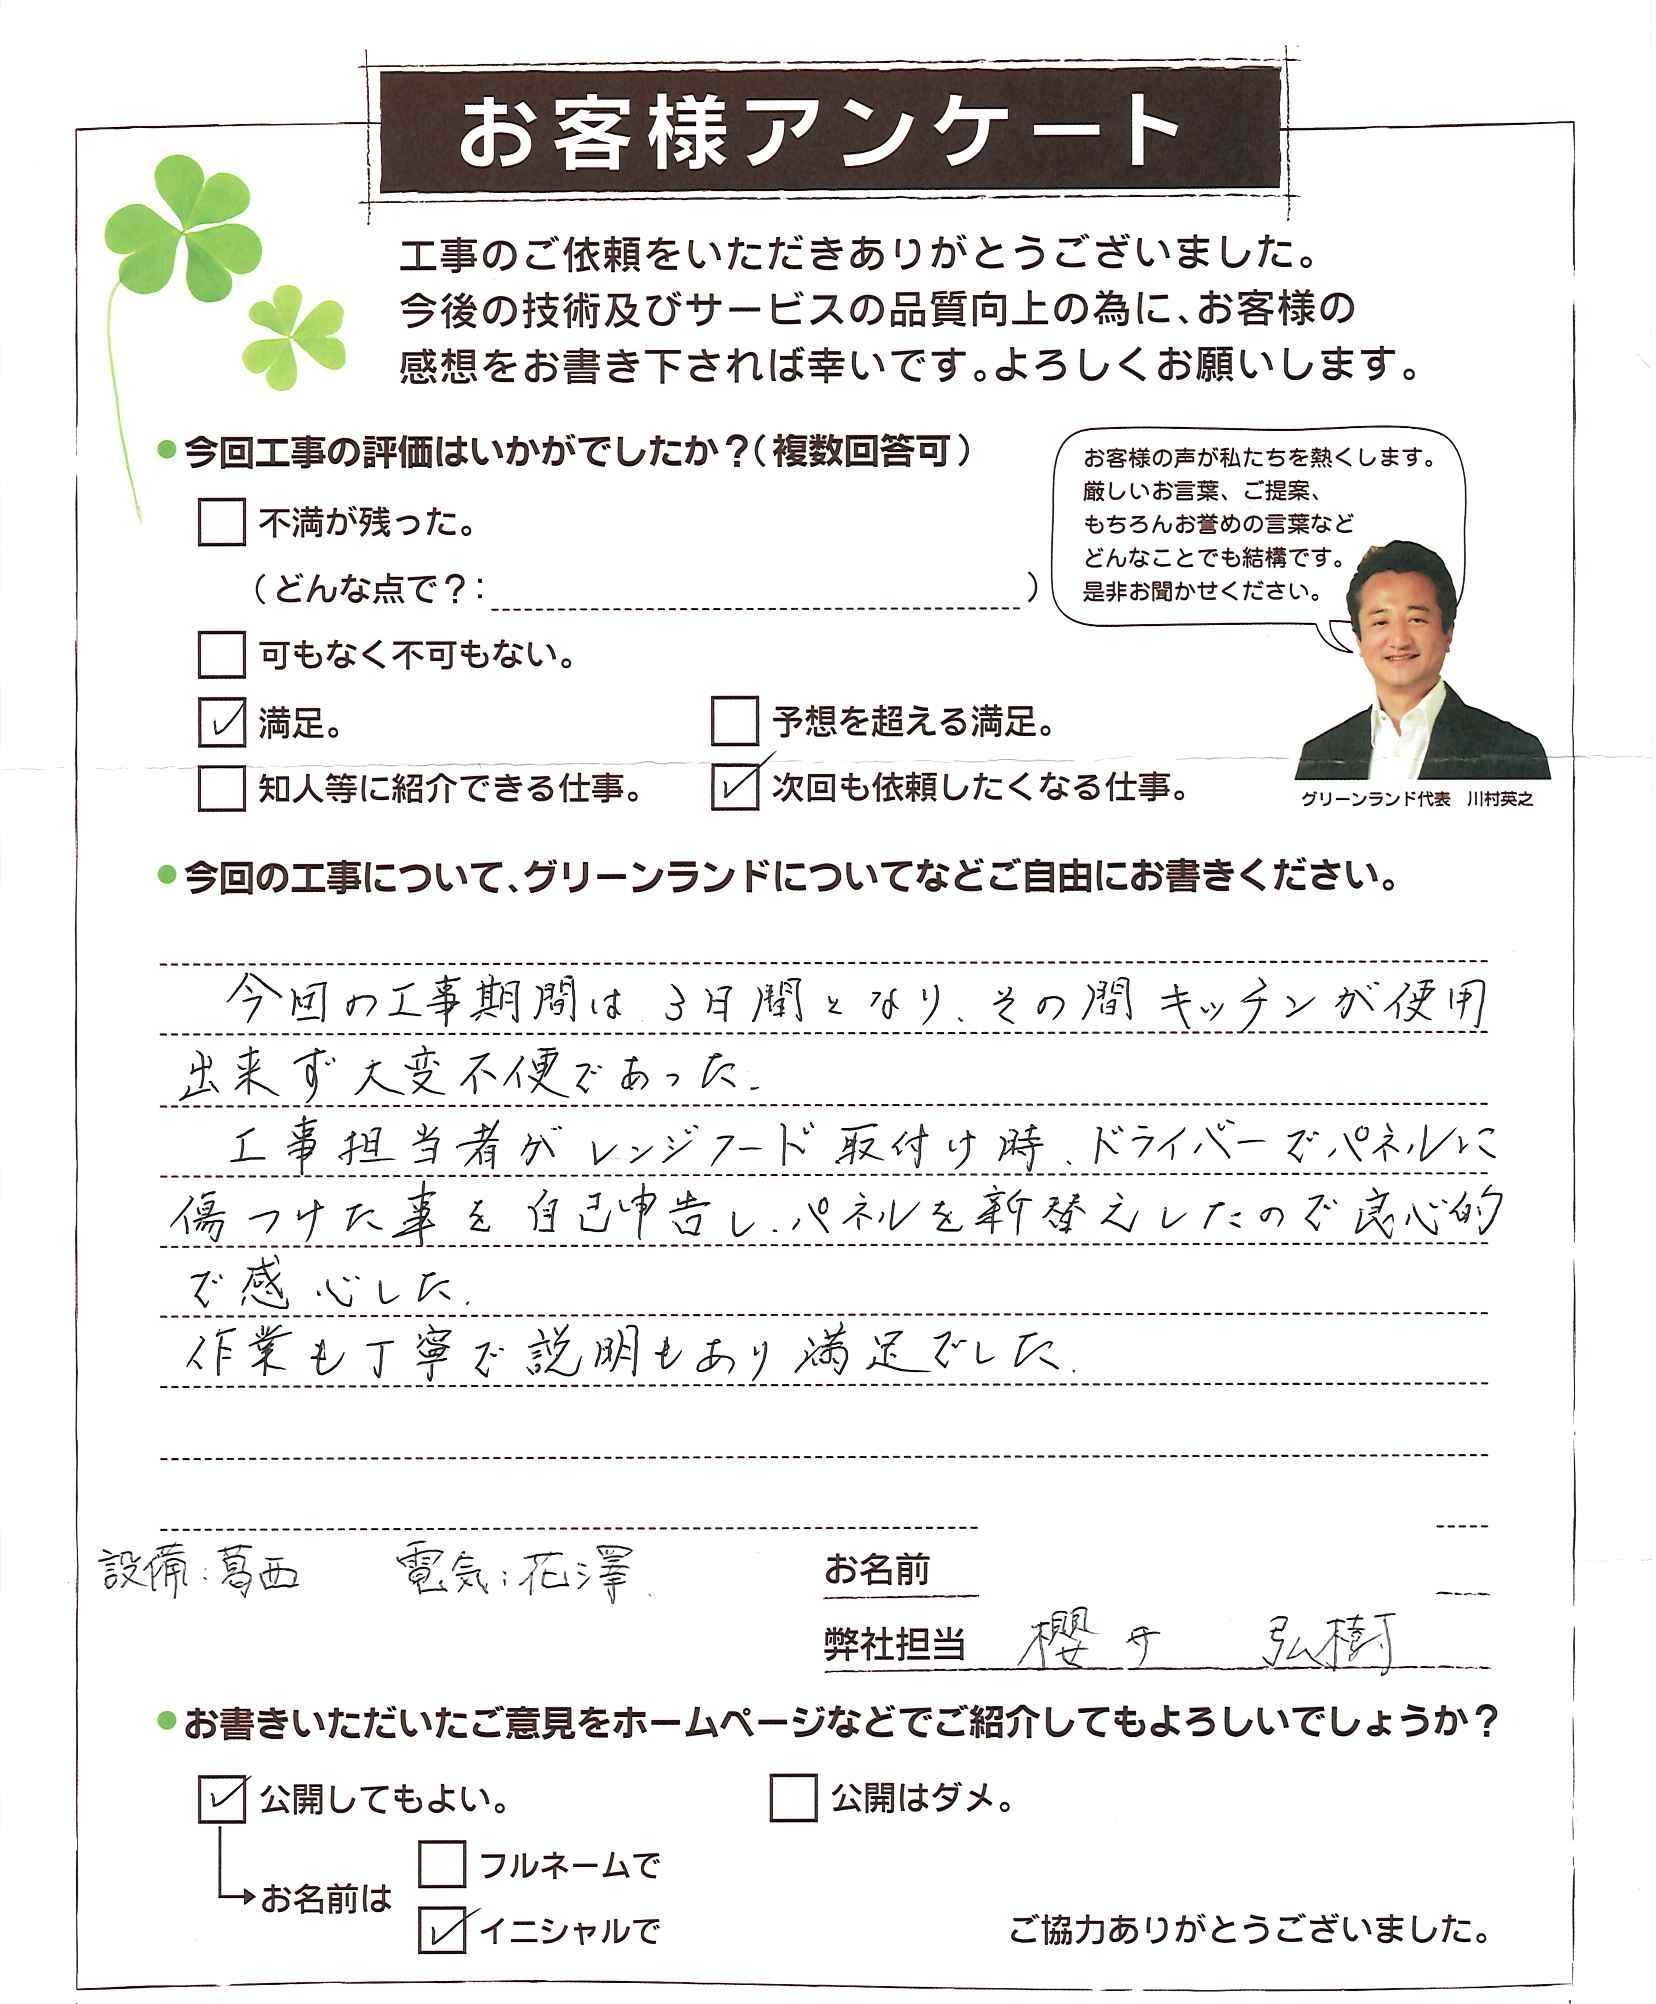 お客様アンケート
工事のご依頼をいただきありがとうございました。
今後の技術及びサービスの品質向上の為に、お客様の
感想をお書き下されば幸いです。よろしくお願いします。
●今回工事の評価はいかがでしたか?(複数回答可)
お客様の声が私たちを熱くします。
厳しいお言葉、ご提案、
もちろんお誉めの言葉など
どんなことでも結構です。
是非お聞かせください。
□不満が残った。
(どんな点で?: )
□可もなく不可もない。
☑満足。 □予想を超える満足。
□知人等に紹介できる仕事。 ☑次回も依頼したくなる仕事。
グリーンランド代表 川村英之
●今回の工事について、グリーンランドについてなどご自由にお書きください。
今回の工事期間は3日間となり、その間キッチンが使用
出来ず大変不便であった。
工事担当者がレンジフード取付け時、ドライバーでパネルに
傷つけた事を自己申告し、パネルを新替えしたので良心的
で感心した。
作業も丁寧で説明もあり満足でした。
設備:葛西 電気:花澤 お名前
弊社担当 櫻井 弘樹
●お書きいただいたご意見をホームページなどでご紹介してもよろしいでしょうか?
☑公開してもよい。 □公開はダメ。
□フルネームで
→お名前は
☑イニシャルで
ご協力ありがとうございました。